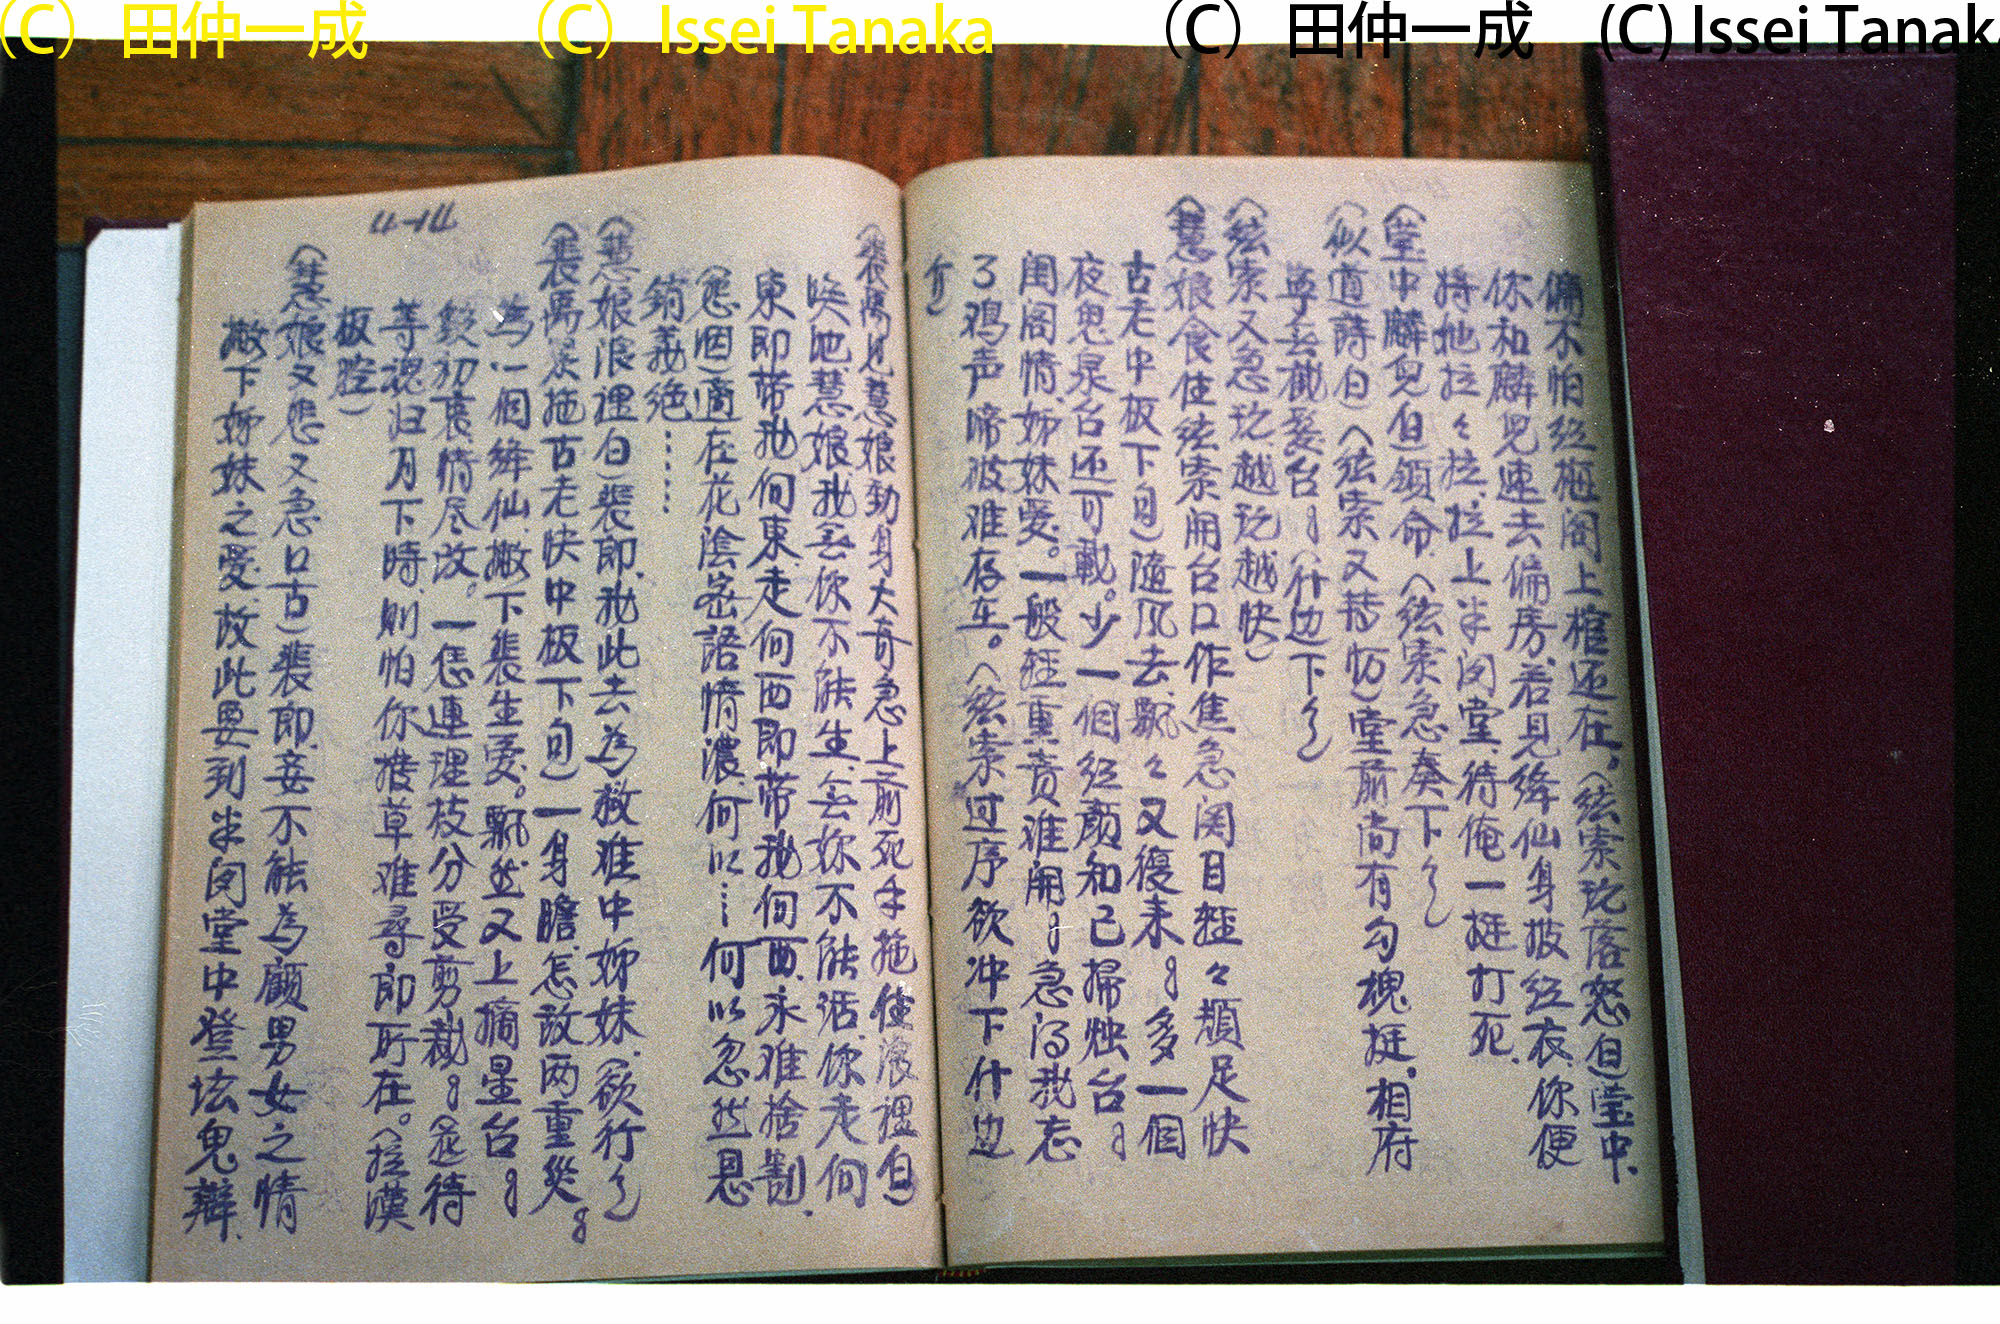 (C) 田仲一成 (C) Issei Tanaka (C) 田仲一成 (C) Issei Tanaka
偏不怕红梅阁上棺还在。（絃索玩落怒白）堂中、
你和麟兒速去偏房、若见绛仙身披红衣、你便
将她拉々拉、拉上半閑堂、待俺一挺打死、
（堂中麟兒白）領命、（絃索急奏下介）
（似道詩白）（絃索又替忉）堂前尚有勾魂挺、相府
寧去截髮台。（什边下介）
（絃索又急玩越玩越快）
（慧娘食住絃索開台口作焦急関目輕々頓足快
古老中板下句）隨风去、飘々又復来。多一個
夜鬼泉台还可載。少一個红颜和已掃烛台。
闺阁情、姊妹爱。一般輕重责难開。急得我忘
了鸡声啼彼难存在。（絃索过序欲冲下什边
介）
（裴禹见慧娘動身大奇急上前死手拖住滾禮白）
唤吔慧娘我会你不能生、会妳不能活、你走向
東即帶我向東、走向西即帶我向西、永难捨割、
（慈姻）適在花陰密語情濃、何以…何以忽然恩
銷義绝……
（慧娘浪裡白）裴郎、我此去為救难中姊妹、（欲行介）
（裴禹急拖古老快中板下句）一身膽、怎敌两重災。
為一個绛仙、撇下裴生爱。飘然又上摘星台。
敍初衷、情尽改。一怎連理枝分受剪裁。還待
等魂归月下時、則怕你推草难尋即所在。（拉漢
板腔）
（慧娘又怨又急口古）裴郎、妾不能為顧男女之情
撇下姊妹之爱、故此要到半閑堂中登坛鬼辯、